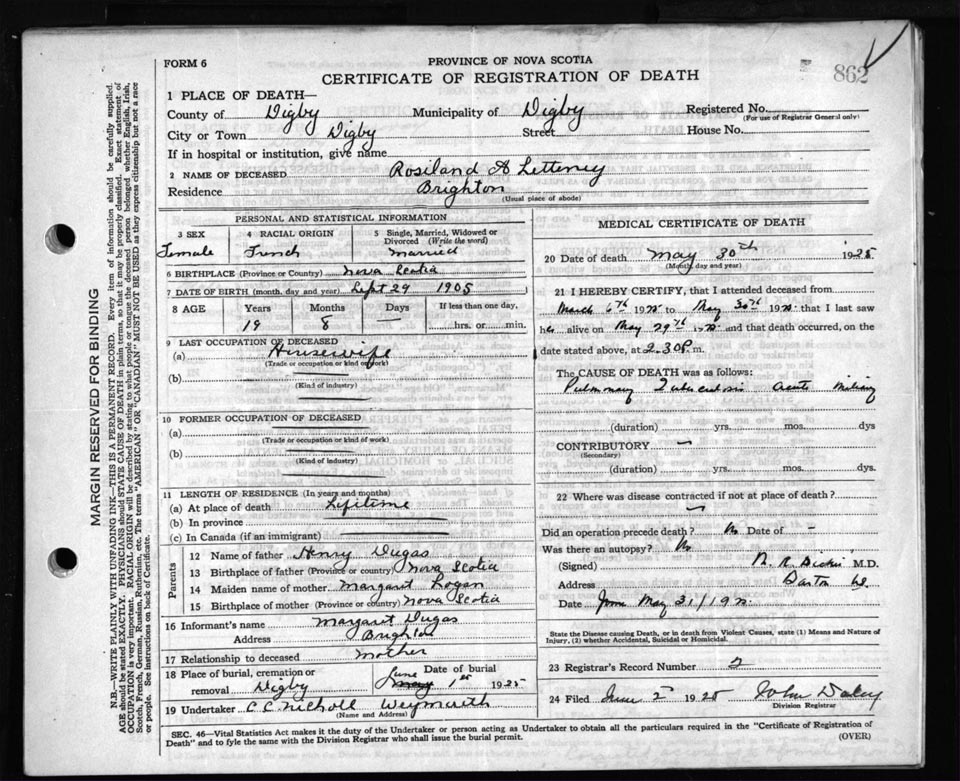 862
FORM 6
PROVINCE OF NOVA SCOTIA
CERTIFICATE OF REGISTRATION OF DEATH
1 PLACE OF DEATH—
County of Digby Municipality of Digby Registered No.
(For use of Registrar General only)
City or Town Digby Street House No.
If in hospital or institution, give name
2 NAME OF DECEASED Rosiland A Letteney
Residence Brighton
(Usual place of abode)
PERSONAL AND STATISTICAL INFORMATION
3 SEX
Female
4 RACIAL ORIGIN
French
5 Single, Married, Widowed or Divorced (Write the word)
Married
6 BIRTHPLACE (Province or Country) Nova Scotia
7 DATE OF BIRTH (month, day and year) Sept 29 1905
8 AGE Years Months Days If less than one day,
19 8 hrs. or min.
9 LAST OCCUPATION OF DECEASED
(a) Housewife
(Trade or occupation or kind of work)
(b)
(Kind of industry)
10 FORMER OCCUPATION OF DECEASED
(a)
(Trade or occupation or kind of work)
(b)
(Kind of industry)
11 LENGTH OF RESIDENCE (In years and months)
(a) At place of death Lifetime
(b) In province
(c) In Canada (if an immigrant)
Parents
12 Name of father Henry Dugas
13 Birthplace of father (Province or country) Nova Scotia
14 Maiden name of mother Margaret Logan
15 Birthplace of mother (Province or country) Nova Scotia
16 Informant's name Margaret Dugas
Address Brighton
17 Relationship to deceased Mother
18 Place of burial, cremation or removal Digby
Date of burial
June 1st 1925
19 Undertaker C C Nicholl Weymouth
(Name and Address)
MEDICAL CERTIFICATE OF DEATH
20 Date of death May 30th 1925
(Month, day and year)
21 I HEREBY CERTIFY, that I attended deceased from
March 6th 1925 to May 30th 1925 that I last saw
her alive on May 29th 1925 and that death occurred, on the
date stated above, at 2.30 P. m.
The CAUSE OF DEATH was as follows:
Pulmonary Tuberculosis Acute Miliary
(duration) yrs. mos. dys
CONTRIBUTORY —
(Secondary)
(duration) yrs. mos. dys.
22 Where was disease contracted if not at place of death?
Did an operation precede death? No Date of –
Was there an autopsy? No
(Signed) M.D.
Address Barton
Date May 31/19
State the Disease causing Death, or in death from Violent Causes, state (1) Means and Nature of
Injury, (2) whether Accidental, Suicidal or Homicidal.
23 Registrar's Record Number 2
24 Filed June 2 1925 John Daley
Division Registrar
SEC. 46—Vital Statistics Act makes it the duty of the Undertaker or person acting as Undertaker to obtain all the particulars required in the "Certificate of Registration of
Death" and to fyle the same with the Division Registrar who shall issue the burial permit.
(OVER)
MARGIN RESERVED FOR BINDING
N.B.—WRITE PLAINLY WITH UNFADING INK—THIS IS A PERMANENT RECORD. Every item of information should be carefully supplied.
AGE should be stated EXACTLY. PHYSICIANS should STATE CAUSE OF DEATH in plain terms, so that it may be properly classified. Exact statement of
OCCUPATION is very important. RACIAL ORIGIN will be described by stating to what people or tongue the deceased person belonged whether English, Irish,
Scotch, French, German, Russian, Ruthenian, etc. The terms "AMERICAN" or "CANADIAN" MUST NOT BE USED as they express citizenship but not a race
or people. See instructions on back of Certificate.